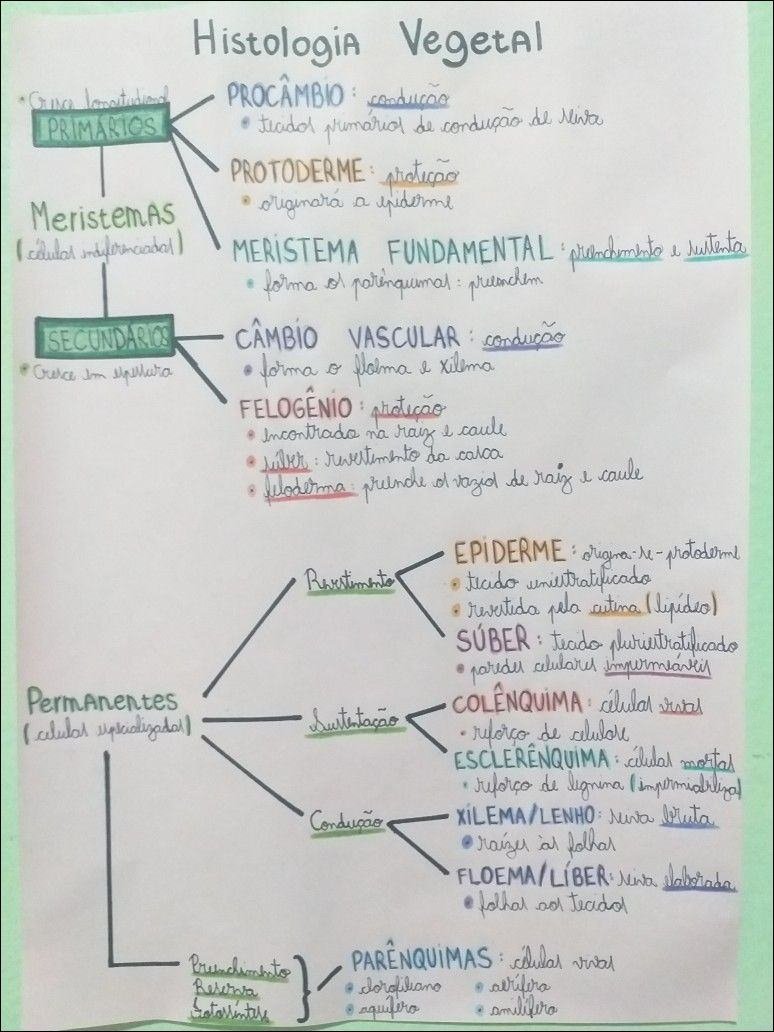 Histologia Vegetal
• Cresce longitudinal
PRIMÁRIOS
PROCÂMBIO: condução
• tecidos primários de condução de seiva
PROTODERME: proteção
• originará a epiderme
Meristemas
(células indiferenciadas)
MERISTEMA FUNDAMENTAL: preenchimento e sustenta
• forma os parênquimas: preenchem
SECUNDÁRIOS
• Cresce em espessura
CÂMBIO VASCULAR: condução
• forma o floema e xilema
FELOGÊNIO: proteção
• encontrado na raiz e caule
• súber: revestimento da casca
• feloderma: preenche os vazios de raiz e caule
Revestimento
EPIDERME: origina-se-protoderme
• tecido uniestratificado
• revestida pela cutina (lipídeo)
SÚBER: tecido pluriestratificado
• paredes celulares impermeáveis
Permanentes
(celulas especializadas)
Sustentação
COLÊNQUIMA: células vivas
• reforço de celulose
ESCLERÊNQUIMA: células mortas
• reforço de lignina (impermiabiliza)
Condução
XILEMA/LENHO: seiva bruta
• raízes às folhas
FLOEMA/LÍBER: seiva elaborada
• folhas aos tecidos
Preenchimento
Reserva
Fotossíntese
PARÊNQUIMAS: células vivas
• clorofiliano • aerífero
• aquífero • amilífero